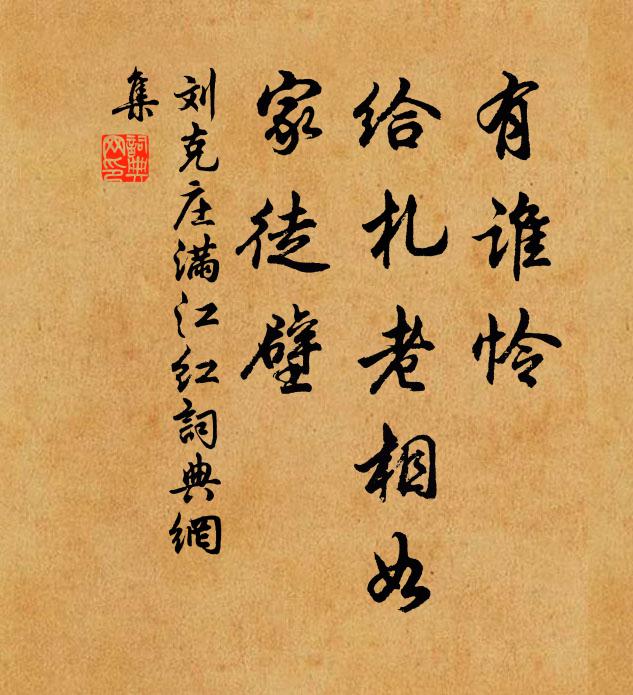 有谁怜
给札老相如
家徒壁
刘克庄满江红詞典網
集
詞典
网印